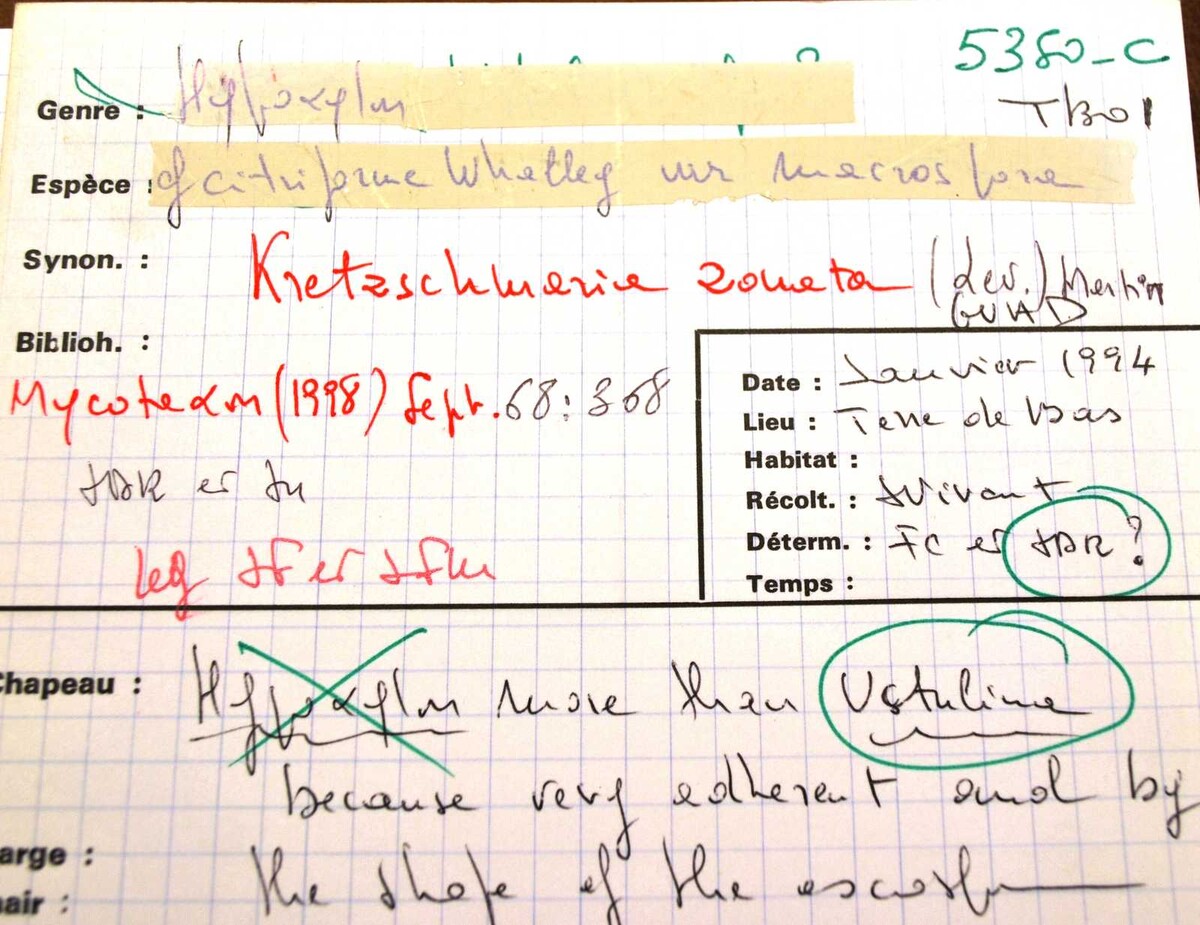 5380-C
Genre : Hypoxylon
TB01
Espèce : cf citriforme Whalley var macrospora
Synon. : Kretzschmaria zonata (Lev.) Martin
GUAD
Biblioh. :
Mycotaxon (1998) Sept. 68: 368
Date : Janvier 1994
Lieu : Terre de Bas
Habitat :
JDR et
Récolt. : JVivant
Déterm. : FC et JDR ?
leg JF et JFM
Temps :
Chapeau : Hypoxylon more than Ustulina
because very adherent and by
arge : the shape of the
hair :